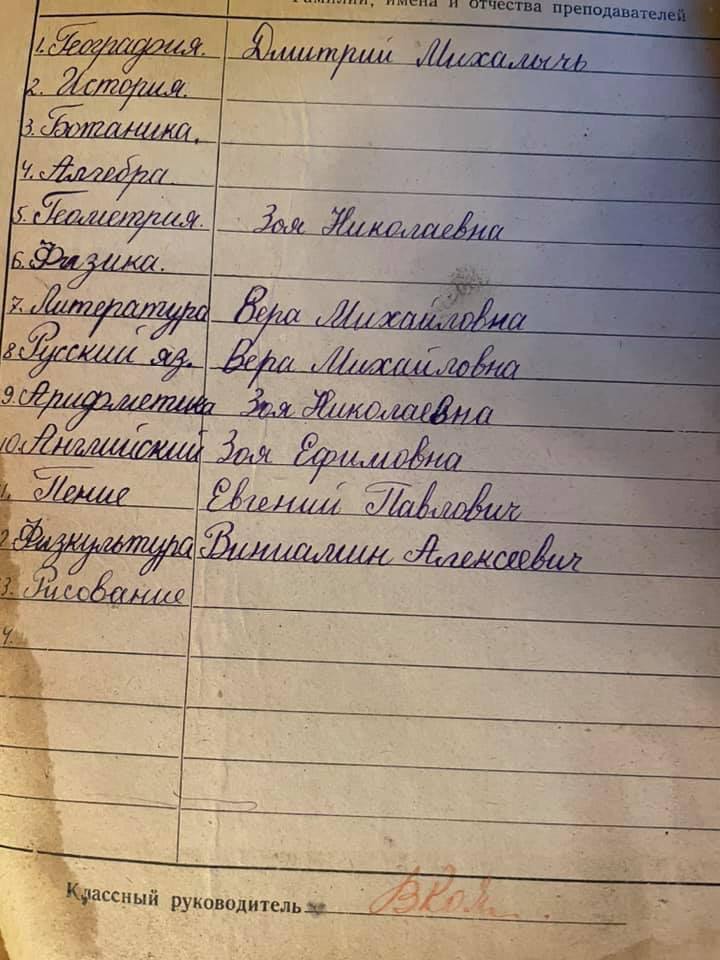 Фамилии, имена и отчества преподавателей
1. География. Дмитрий Михалычь
2. История.
3. Ботаника.
4. Алгебра.
5. Геометрия. Зоя Николаевна
6. Физика.
7. Литература Вера Михайловна
8 Русский яз. Вера Михайловна
9. Арифметика Зоя Николаевна
10. Английский Зоя Ефимовна
1. Пение Евгений Павлович
2. Физкультура Виниамин Алексеевич
3. Рисование
4.
Классный руководитель